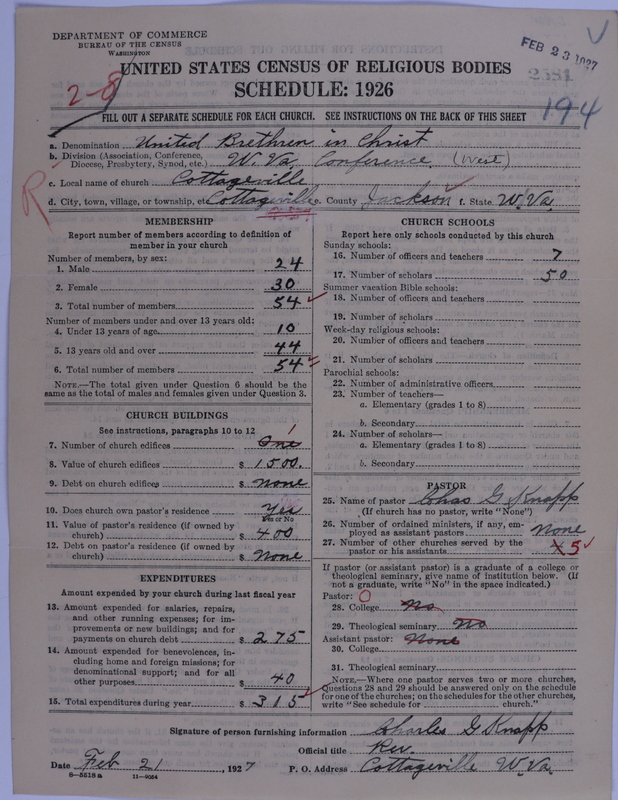 DEPARTMENT OF COMMERCE
BUREAU OF THE CENSUS
WASHINGTON
FEB 23 1927
2381
UNITED STATES CENSUS OF RELIGIOUS BODIES
SCHEDULE: 1926
2-8
194
FILL OUT A SEPARATE SCHEDULE FOR EACH CHURCH. SEE INSTRUCTIONS ON THE BACK OF THIS SHEET
a. Denomination United Brethren in Christ
b. Division (Association, Conference, Diocese, Presbytery, Synod, etc.) W. Va. Conference (West)
c. Local name of church Cottageville
R
d. City, town, village, or township, etc. Cottageville e. County Jackson f. State W. Va.
MEMBERSHIP
Report number of members according to definition of
member in your church
Number of members, by sex:
1. Male 24
2. Female 30
3. Total number of members 54
Number of members under and over 13 years old:
4. Under 13 years of age 10
5. 13 years old and over 44
6. Total number of members 54
NOTE.—The total given under Question 6 should be the
same as the total of males and females given under Question 3.
CHURCH BUILDINGS
See instructions, paragraphs 10 to 12
7. Number of church edifices One 1
8. Value of church edifices $ 1500.
9. Debt on church edifices $ None
10. Does church own pastor's residence Yes
Yes or No
11. Value of pastor's residence (if owned by
church) $ 400
12. Debt on pastor's residence (if owned by
church) $ None
EXPENDITURES
Amount expended by your church during last fiscal year
13. Amount expended for salaries, repairs,
and other running expenses; for im-
provements or new buildings; and for
payments on church debt $ 275
14. Amount expended for benevolences, in-
cluding home and foreign missions; for
denominational support; and for all
other purposes $ 40
15. Total expenditures during year $ 315
CHURCH SCHOOLS
Report here only schools conducted by this church
Sunday schools:
16. Number of officers and teachers 7
17. Number of scholars 50
Summer vacation Bible schools:
18. Number of officers and teachers
19. Number of scholars
Week-day religious schools:
20. Number of officers and teachers
21. Number of scholars
Parochial schools:
22. Number of administrative officers
23. Number of teachers—
a. Elementary (grades 1 to 8)
b. Secondary
24. Number of scholars—
a. Elementary (grades 1 to 8)
b. Secondary
PASTOR
25. Name of pastor Chas G Knapp
(If church has no pastor, write "None")
26. Number of ordained ministers, if any, em-
ployed as assistant pastors None
27. Number of other churches served by the
pastor or his assistants 5
If pastor (or assistant pastor) is a graduate of a college or
theological seminary, give name of institution below. (If
not a graduate, write "No" in the space indicated.)
Pastor: O
28. College No
29. Theological seminary No
Assistant pastor: None
30. College
31. Theological seminary
NOTE.—Where one pastor serves two or more churches,
Questions 28 and 29 should be answered only on the schedule
for one of the churches; on the schedules for the other churches,
write "See schedule for church."
Signature of person furnishing information Charles G Knapp
Official title Rev.
Date Feb 21, 1927 P. O. Address Cottageville W. Va.
8—5518 a 11—9054